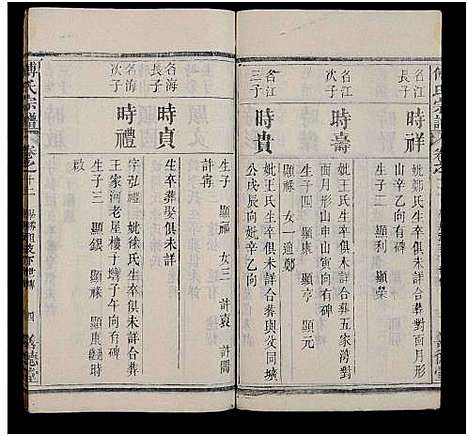 傅氏宗譜
名江
長子
時祥
妣鄭氏生卒俱未詳合葬對面月形
山辛山乙向
生子二 顯利 顯榮
名江
次子
時壽
妣王氏生卒俱未詳合葬五家灣對
面月形山申山寅向有碑
生子四 顯康 顯亨 顯元
顯祿 女一適鄭
名江
三子
時貴
妣王氏生卒俱未詳合葬與攵同墈
公戌辰向妣辛乙向
生子一 顯祿 女三 許袁 許閻
許甯
名海
長子
時貞
生卒葬娶俱未詳
名海
次子
時禮
字弘禮 妣徐氏生卒俱未詳合葬
王家河老屋樓于塆子午向有碑
生子三 顯銀 顯祿 顯康幾時
啟
傅氏宗譜
卷之十二
四